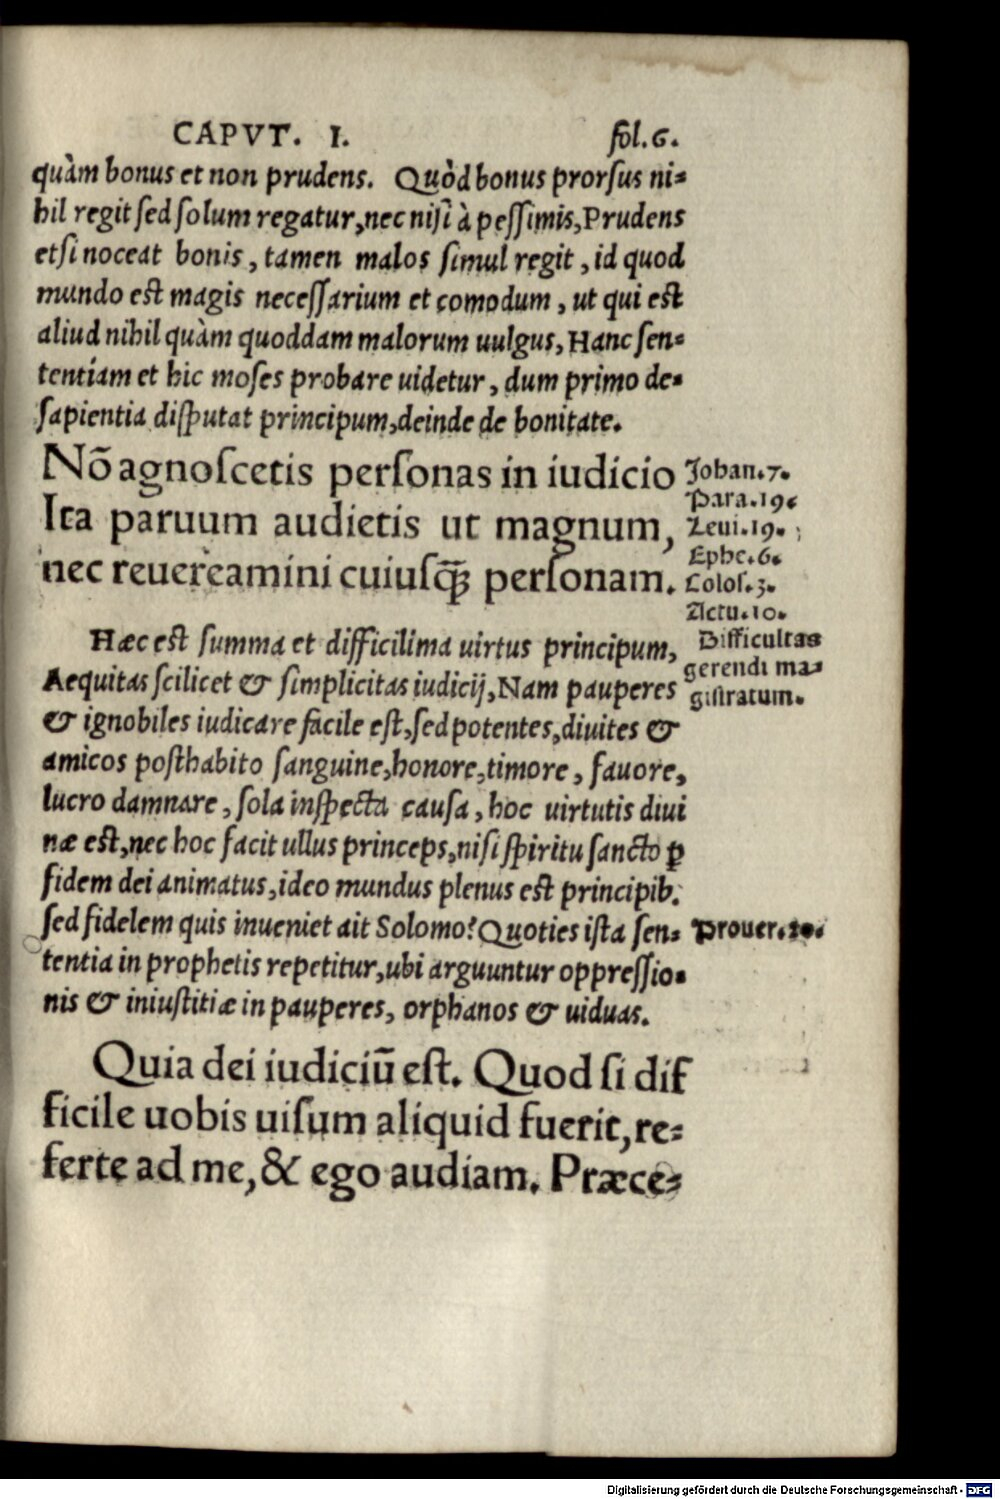 CAPVT. I. fol.6.
quàm bonus et non prudens. Quòd bonus prorſus ni⸗
hil regit ſed ſolum regatur, nec niſi à peſſimis, Prudens
etſi noceat bonis, tamen malos ſimul regit, id quod
mundo est magis neceſſarium et comodum, ut qui est
aliud nihil quàm quoddam malorum uulgus, Hanc ſen⸗
tentiam et hic moſes probare uidetur, dum primo de⸗
ſapientia diſputat principum, deinde de bonitate.
Nõ agnoſcetis perſonas in iudicio
Ita paruum audietis ut magnum,
nec reuereamini cuiuſq̃ʒ perſonam.
Johan.7.
Para.19.
Leui.19.
Ephe.6.
Coloſ.3.
Actu.10.
Difficultas
gerendi ma⸗
giſtratum.
Hæc est ſumma et difficilima uirtus principum,
Aequitas ſcilicet & ſimplicitas iudicij, Nam pauperes
& ignobiles iudicare facile eſt, ſed potentes, diuites &
amicos poſthabito ſanguine, honore, timore, fauore,
lucro damnare, ſola inſpecta cauſa, hoc uirtutis diui
næ eſt, nec hoc facit ullus princeps, niſi ſpiritu ſancto ꝑ
fidem dei animatus, ideo mundus plenus eſt principib.
ſed fidelem quis inueniet ait Solomo? Quoties iſta ſen⸗
Prouer.20.
tentia in prophetis repetitur, ubi arguuntur oppreſſio⸗
nis & iniuſtitiæ in pauperes, orphanos & uiduas.
Quia dei iudiciũ eſt. Quod ſi dif
ficile uobis uiſum aliquid fuerit, re⸗
ferte ad me, & ego audiam. Præce⸗
Digitalisierung gefördert durch die Deutsche Forschungsgemeinschaft - DFG